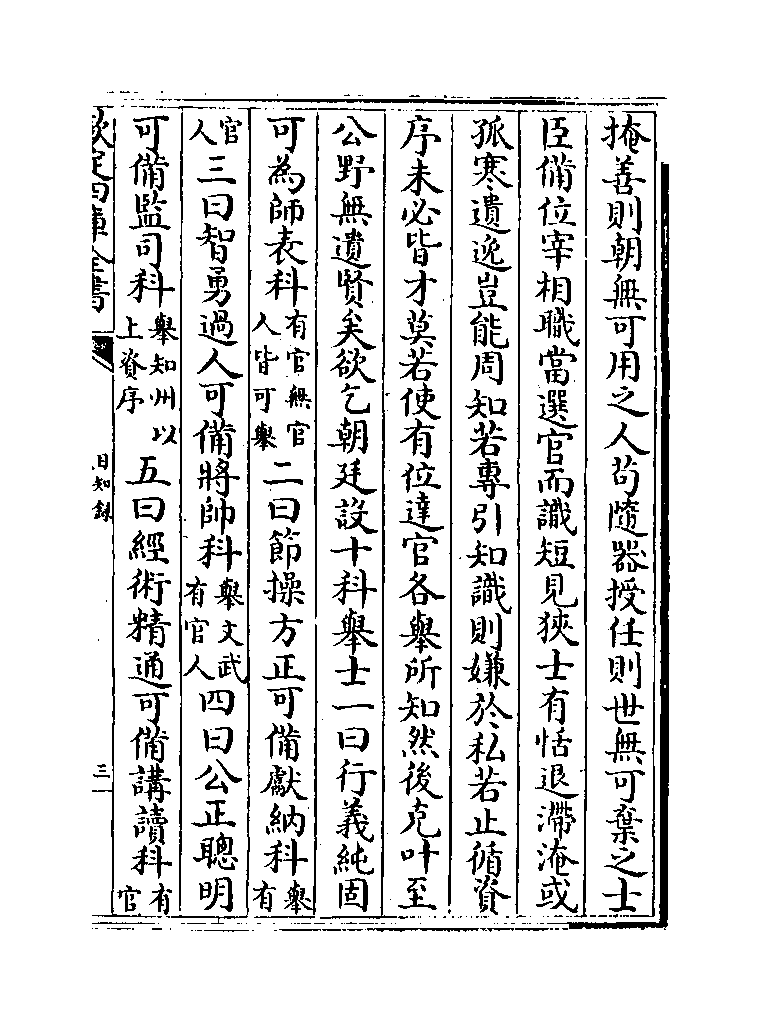 掩善則朝無可用之人苟隨器授任則世無可棄之士
臣備位宰相職當選官而識短見狹士有恬退滯淹或
孤寒遺逸豈能周知若專引知識則嫌於私若止循資
序未必皆才莫若使有位達官各舉所知然後克叶至
公野無遺賢矣欲乞朝廷設十科舉士一曰行義純固
可為師表科有官無官人皆可舉二曰節操方正可備獻納科舉有
官人三曰智勇過人可備將帥科舉文武有官人四曰公正聰明
可備監司科舉知州以上資序五曰經術精通可備講讀科有官
欽定四庫全書
日知錄
三一